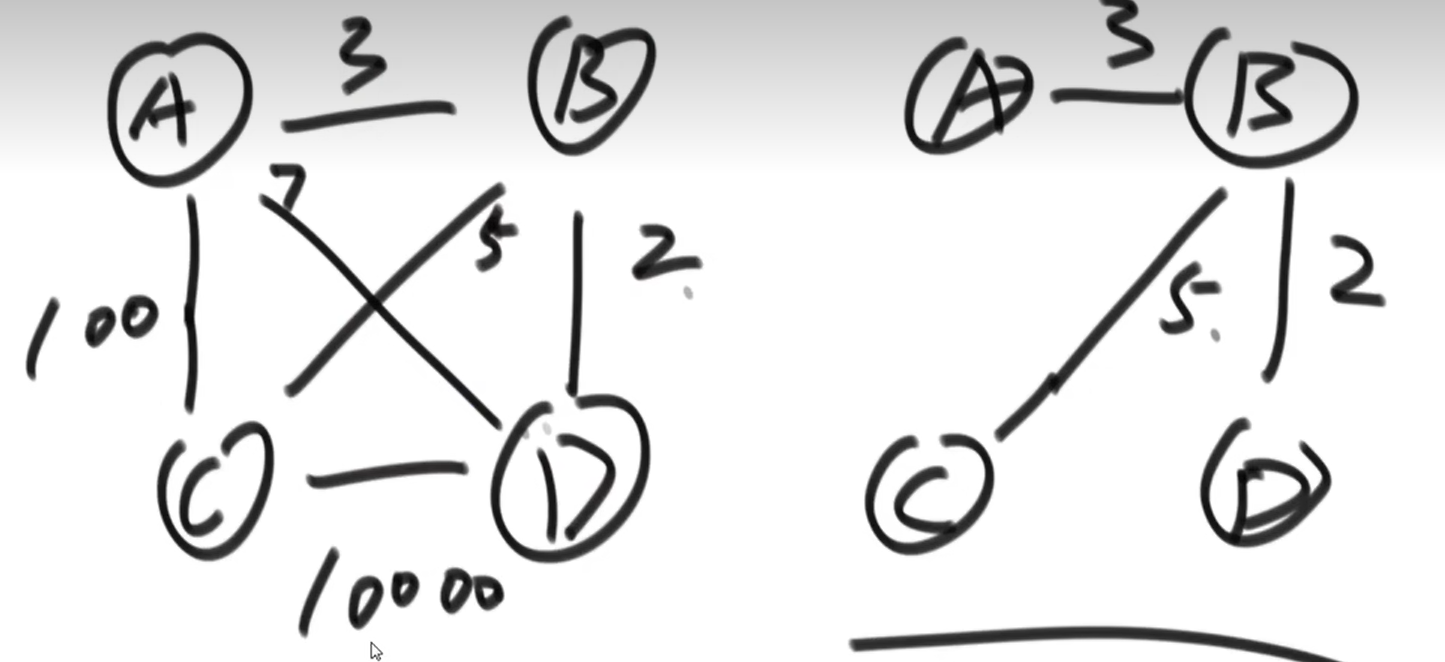 A 3 B
7 5 2
100
C D
10000
A 3 B
5 2
C D